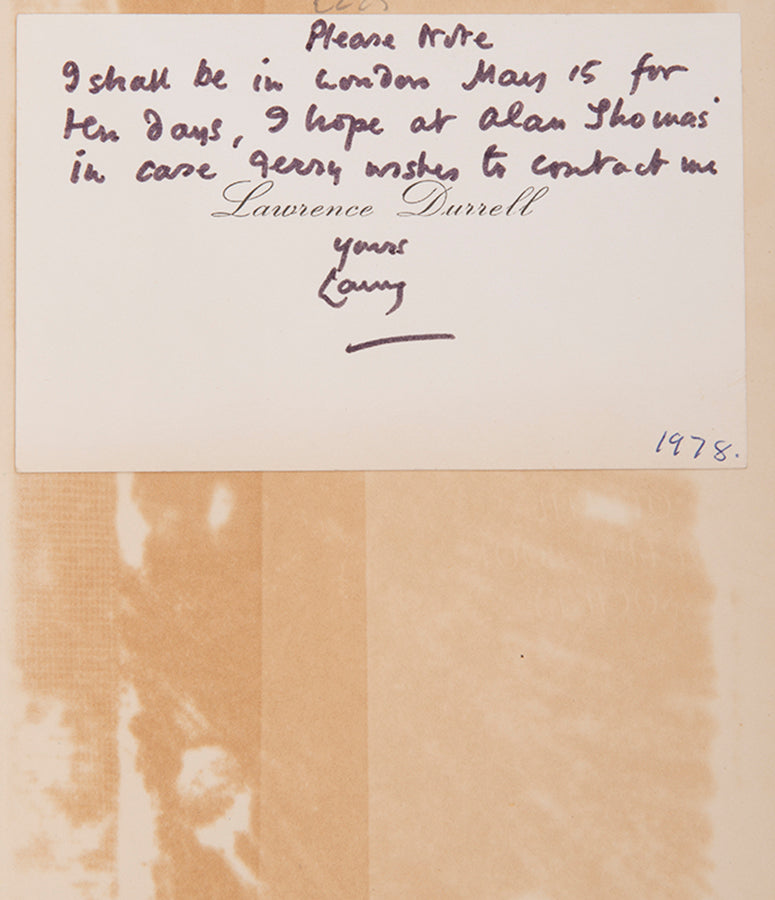 Please Note
I shall be in London May 15 for
ten days, I hope at Alan Thomas'
in case Gerry wishes to contact me
Lawrence Durrell
yours
Larry
1978.